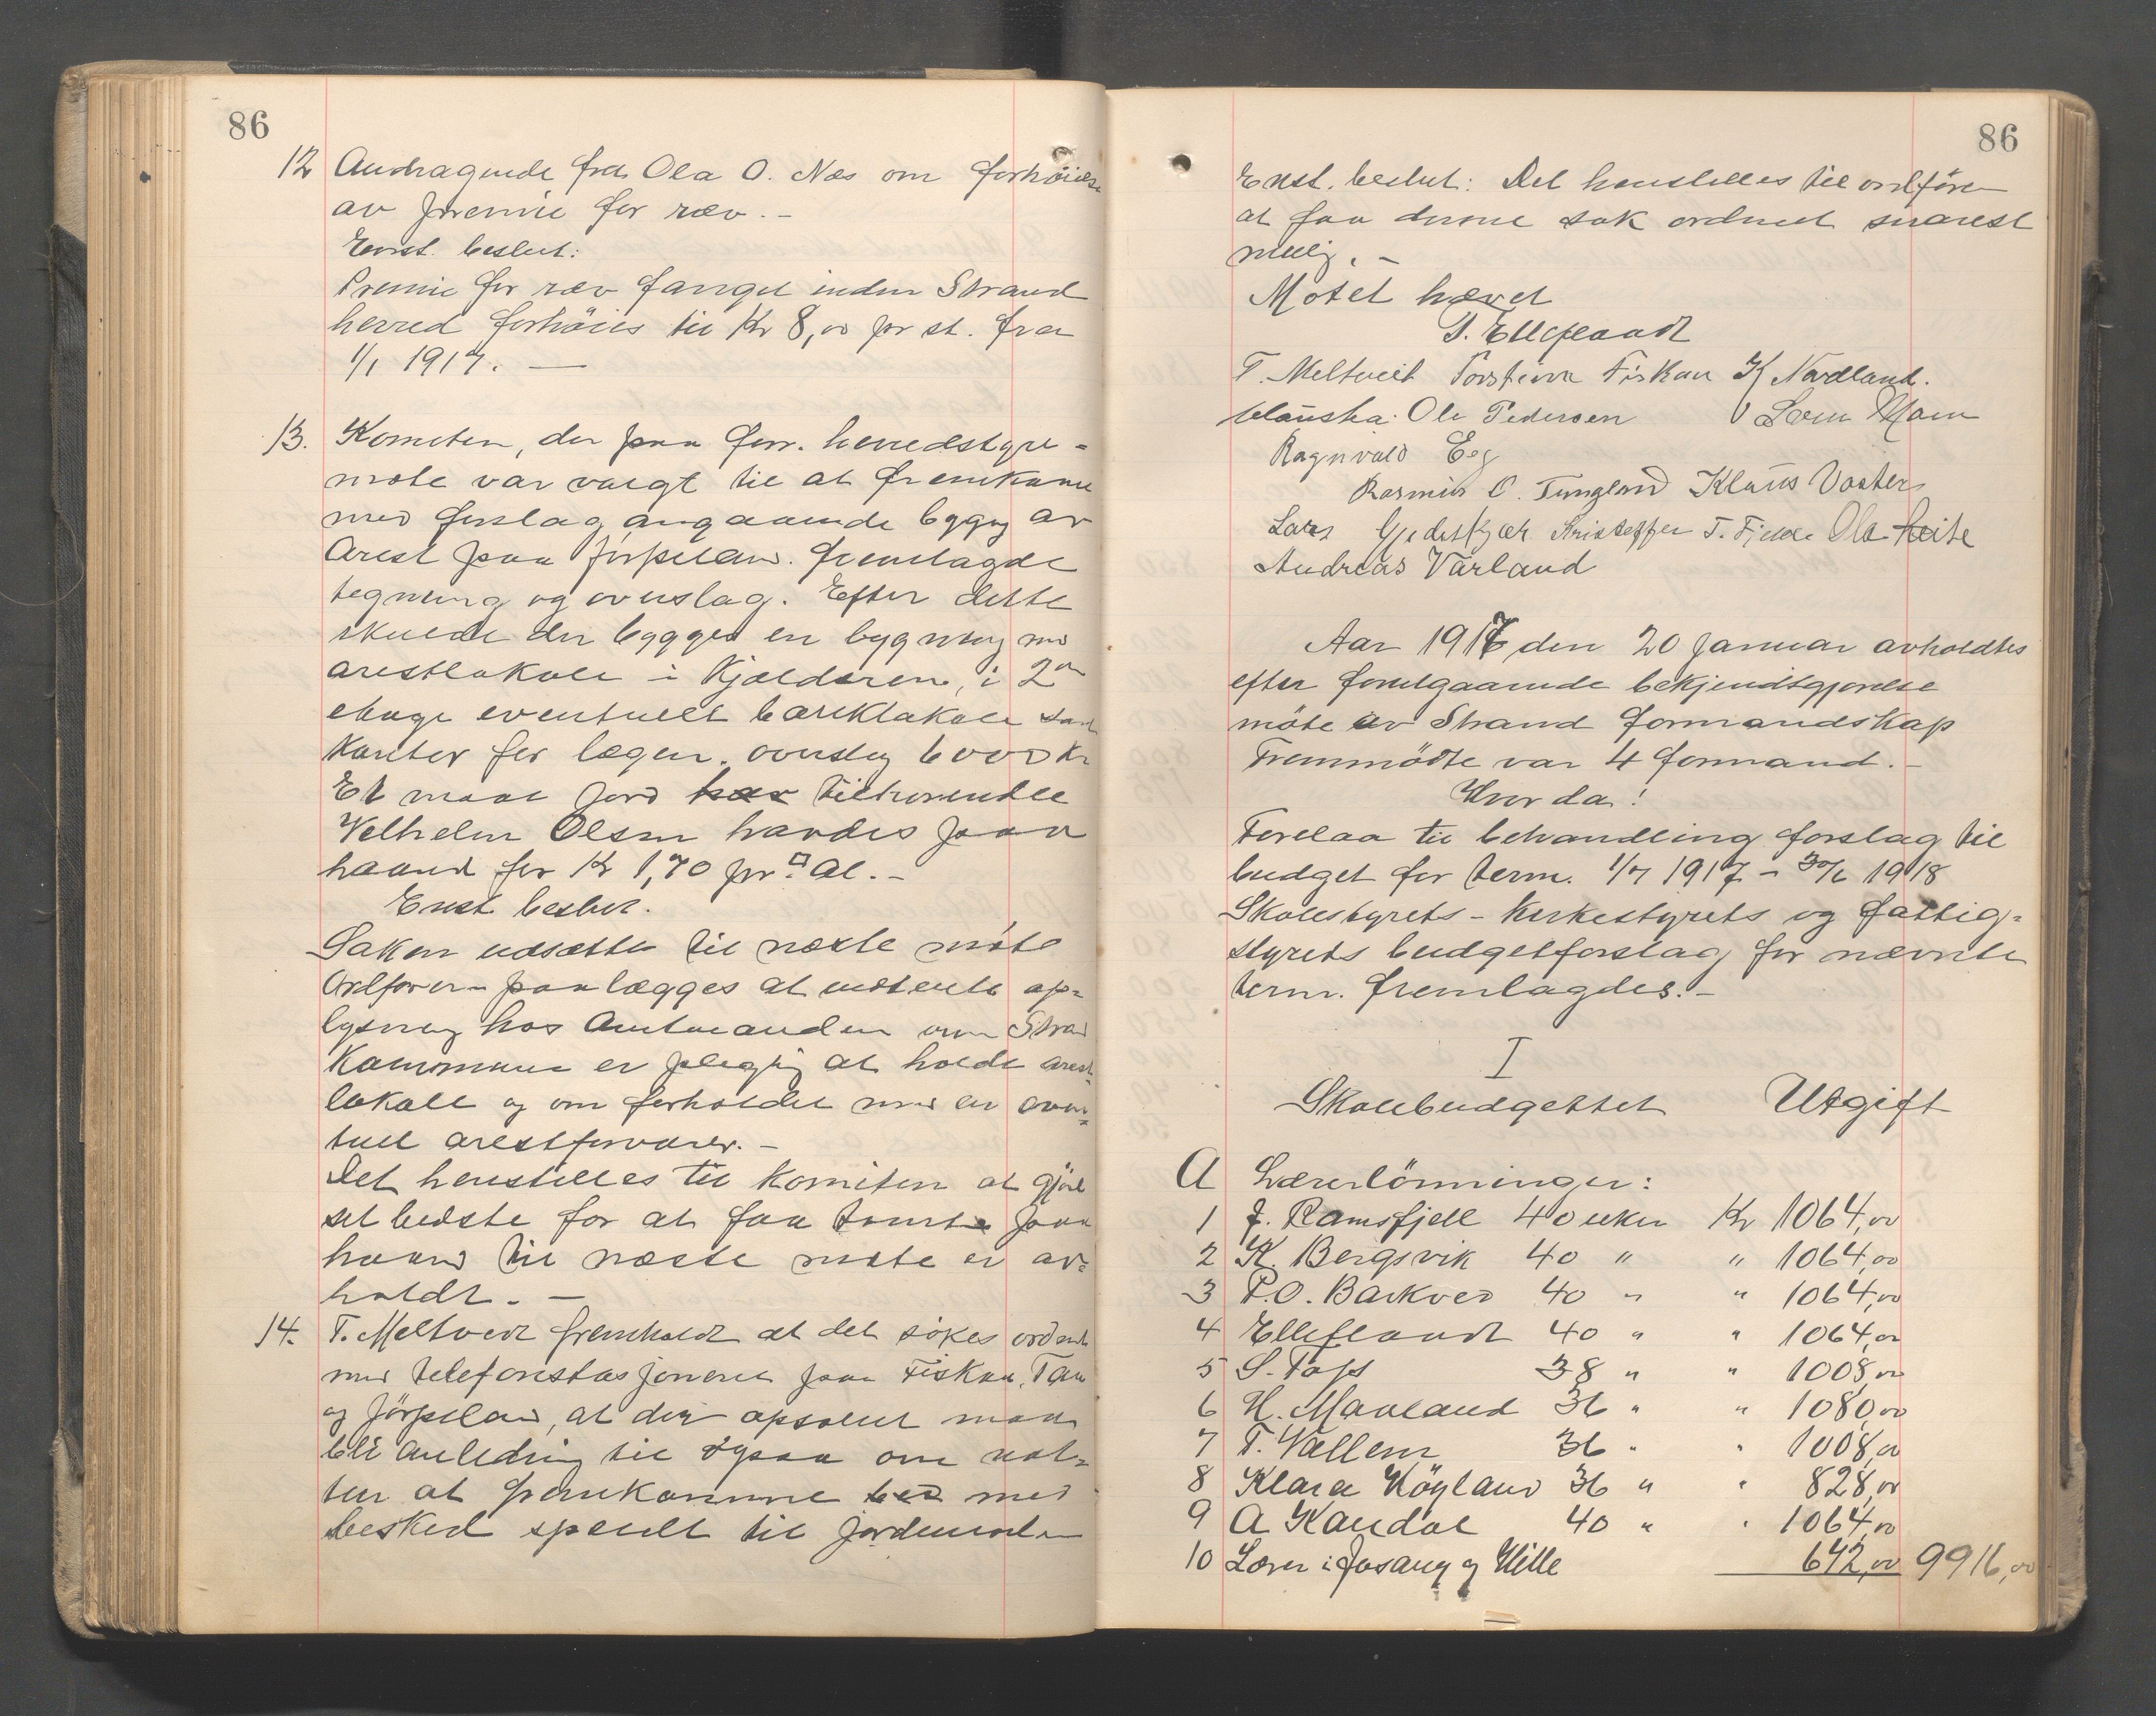 86
12 Andragende fra Ola O. Næs om forhöielse
av premie for ræv. –
Enst. beslut:
Premie for ræv fanget inden Strand
herred forhöies til Kr 8,00 pr st. fra
1/1 1917. —
13. Komiteen, der paa forr. herredstyre-
möte var valgt til at fremkomme
med forslag angaaende bygg av
Arest paa Jörpeland. fremlagde
tegning og overslag. Efter dette
skulde der bygges en bygning med
arestlokale i Kjælderen, i 2den
etage eventuelt banklokale samt
Kontor for lægen. overslag 6000 Kr
Et maal jord har tilhörende
Velhelm Olsen havdes paa
haand for Kr 1,70 pr □ Al. –
Enst. beslut.
Saken utsættes til næste möte
Ordföreren paalægges at indhente op-
lysning hos Amtmanden om Strand
Kommune er pligtig at holde arest-
lokale og om forholdet med en even-
tuel arestforvarer. –
Det henstilles til Komiteen at gjöre
sit bedste for at faa tomten paa
haand til næste möte er av-
holdt. —
14. T. Meltveit fremholdt at det sökes ordnet
med telefonstasjonerne paa Fiskaa, Tau
og Jörpeland, at der apsolut maa
bli anledning til ogsaa om nat-
ten at fremkomme bed med
besked specielt til jordmoderen
86
Enst. beslut: Det henstilles til ordföreren
at faa denne sak ordnet snarest
mulig. –
Motet hævet
T. Ellefsandt
T. Meltveit Torstein Fiskaa K Nordland.
Clauska. Ole Pedersen Sven Mom
Ragnvald Eeg
Rasmus O. Tungland Klaus Voster
Lars Gjedskjær Kristoffer T. Fjelde Ola Heite
Andreas Varland
Aar 1917 den 20 Januar avholdtes
efter forutgaaende bekjendtgjørelse
möte av Strand formandskap
Fremmödte var 4 formænd. –
Hvor da!
Forelaa til behandling forslag til
budget for term. 1/7 1917 – 30/6 1918
Skolestyrets – Kirkestyrets og fattig-
styrets budgetforslag for nævnte
term. fremlagdes. –
I
Skolebudgettet Utgift
A Lærerlönninger:
1 J. Ramsfjell 40 uker Kr 1064,00
2 K. Bergsvik 40 " " 1064,00
3 P.O. Barkved 40 " " 1064,00
4 Elleflandt 40 " " 1064,00
5 S. Foss 38 " " 1008,00
6 H. Maaland 36 " " 1080,00
7 T. Vallem 36 " " 1008,00
8 Klara Högland 36 " " 828,00
9 A Kandal 40 " " 1064,00
10 Lærer i Jøsang og Hille 672,00 9916,00